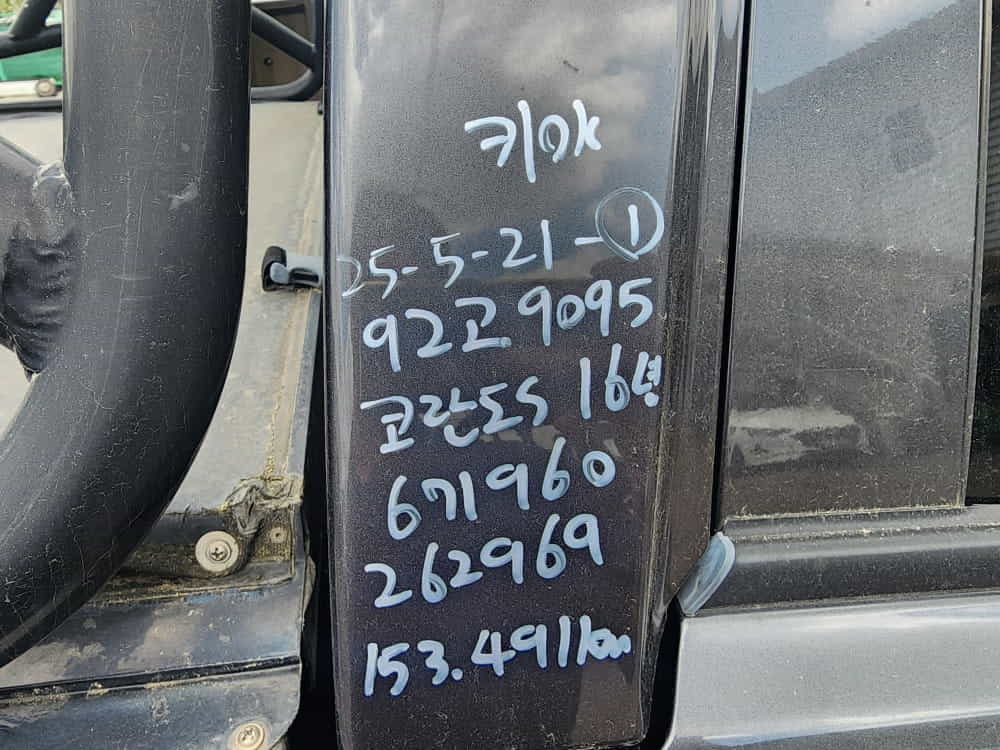 키ㅇㅆ
25-5-21-①
92고.9095
코란도S 16년
671960
262969
153.491km